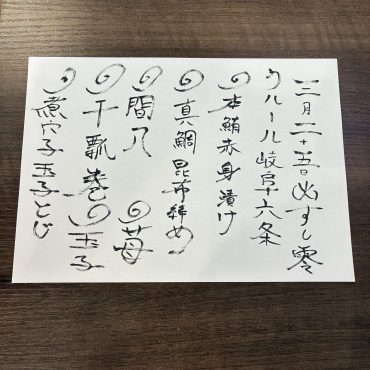 三月二十五日 すし零
クルール岐阜十六条
◎本鮪赤身漬け
◎真鯛昆布締め
◎間八 ◎苺
◎干瓢巻 ◎玉子
◎煮穴子玉子とじ